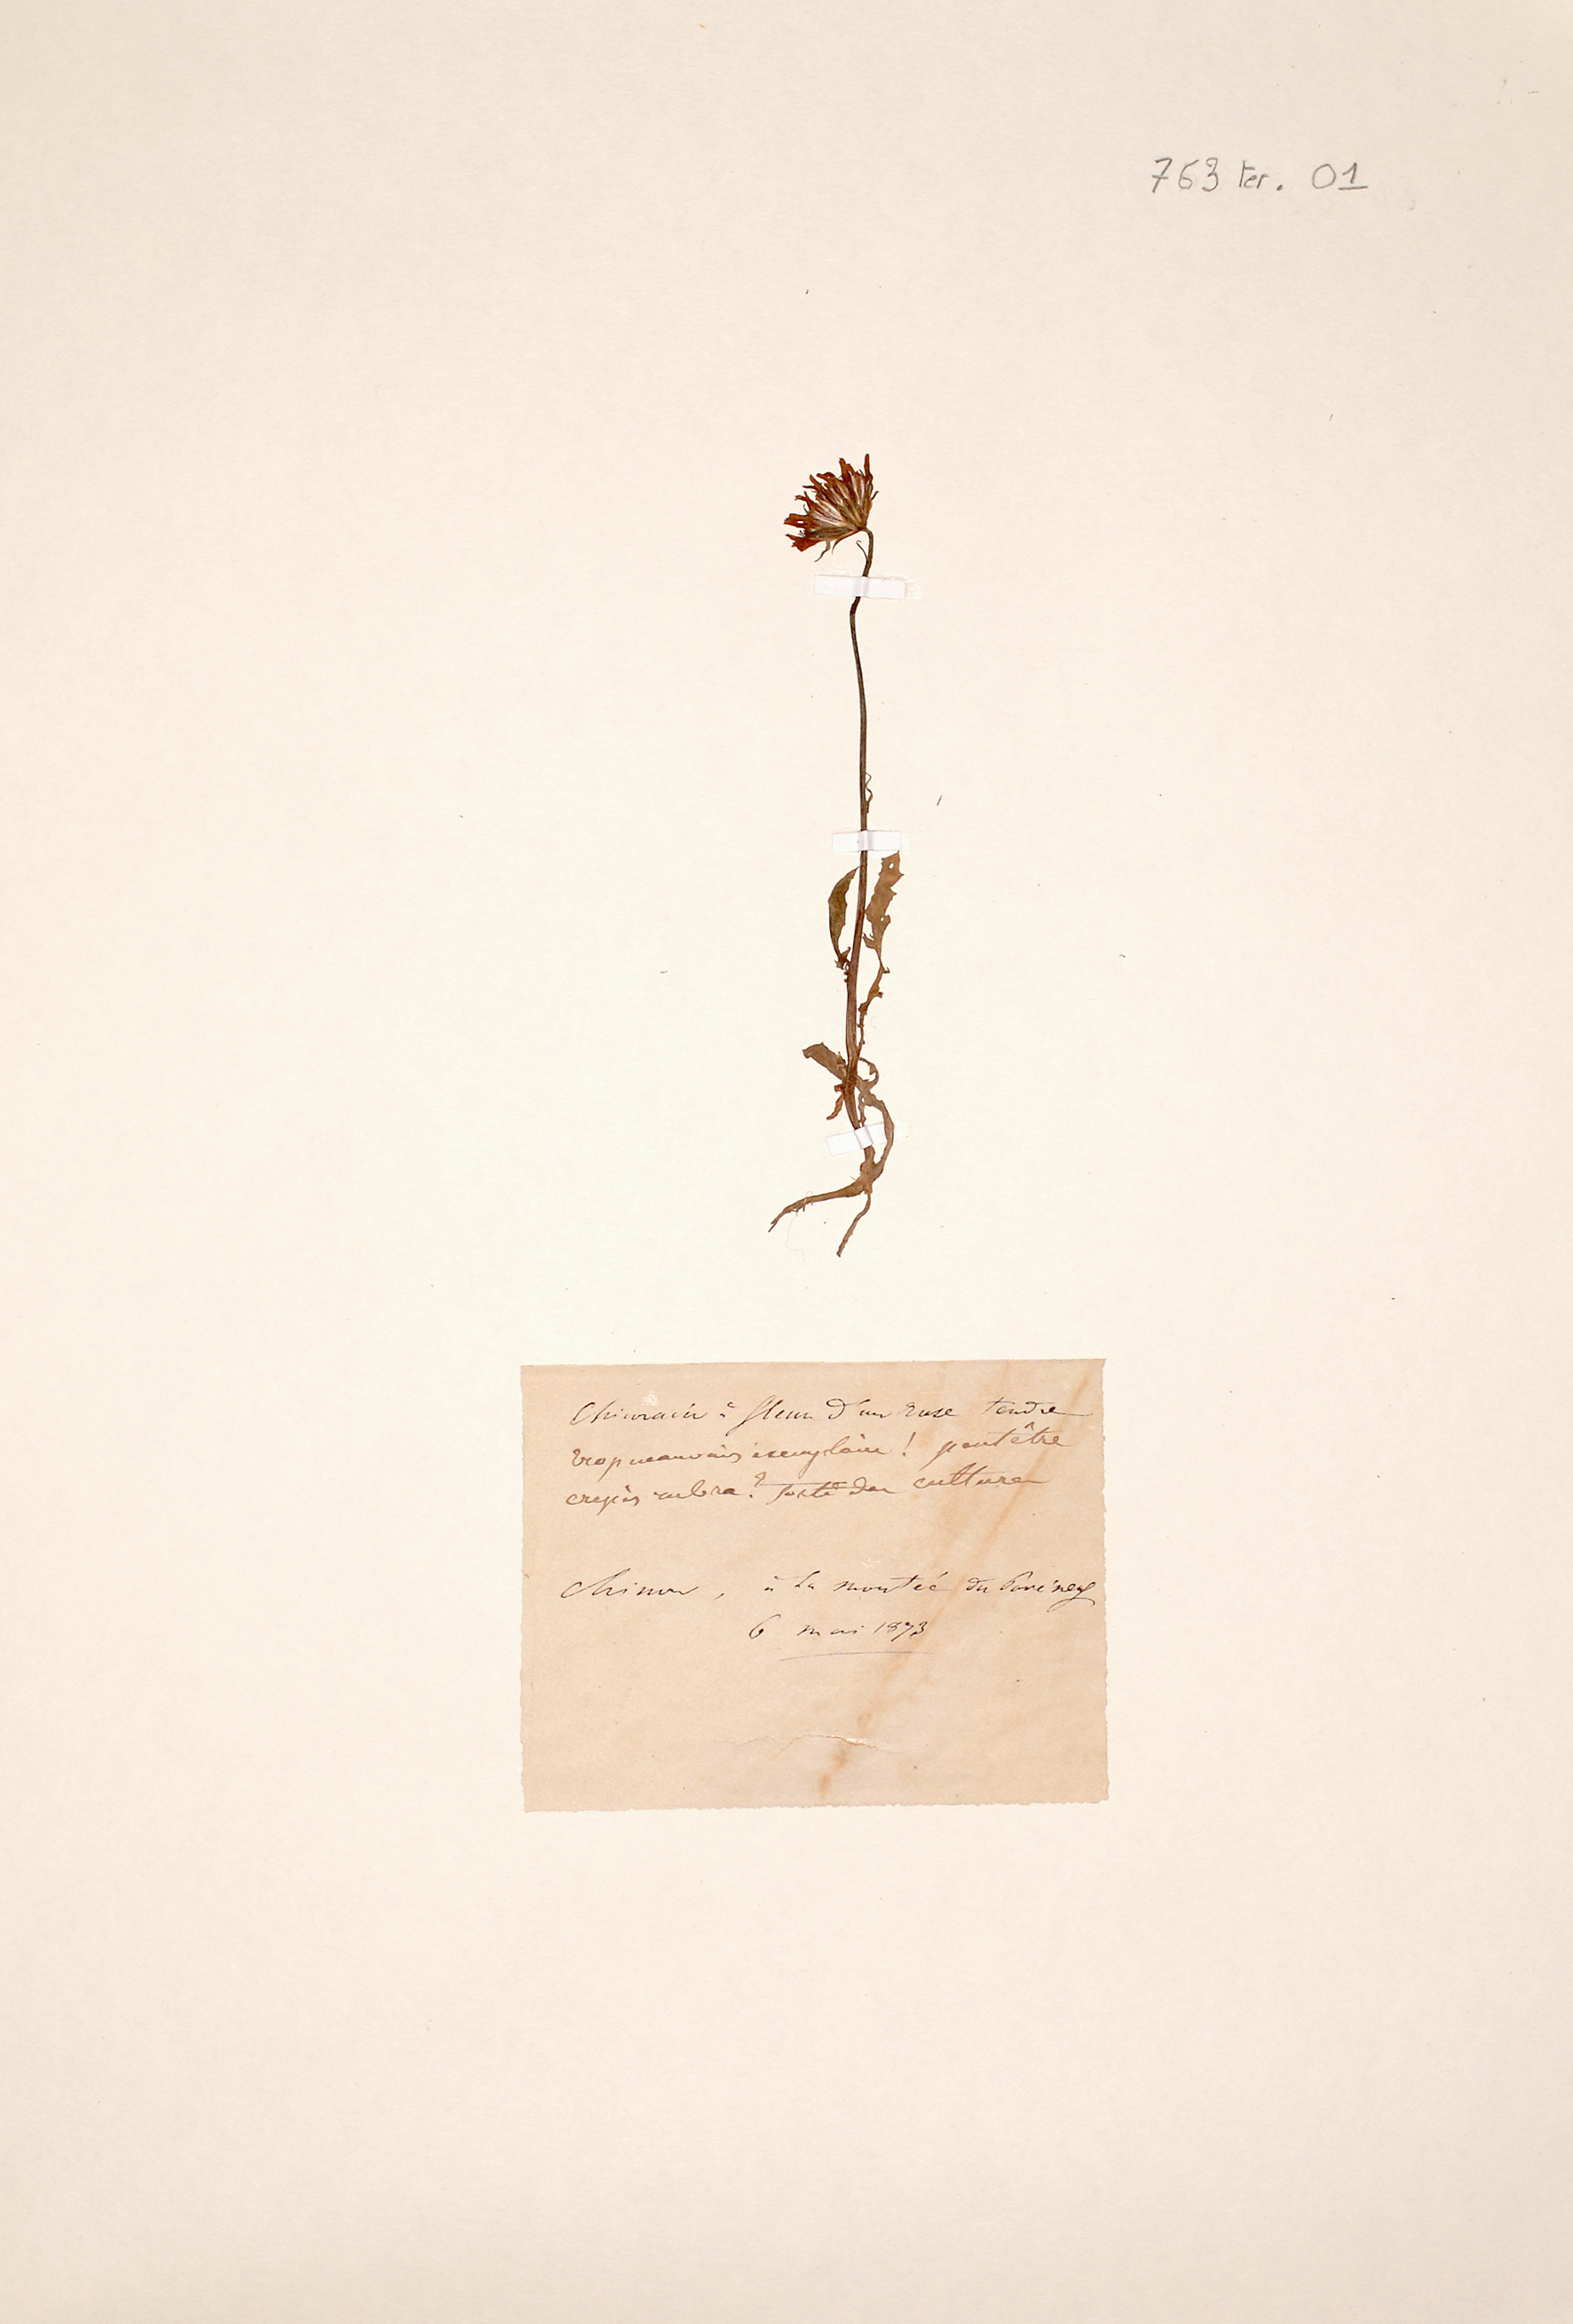 763 ter. 01
à fleur d'un rose tendre
trop mauvais exemplaire ! peutêtre
crepis rubra ? sorti des cultures
Chinon, à la montée du
6 mai 1873